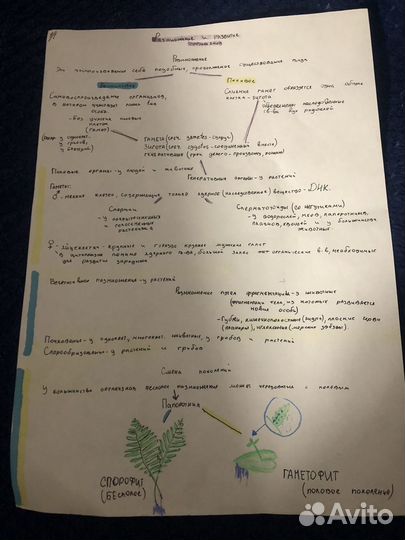 Размножение и развитие
организмов
Размножение
Это воспроизведение себе подобных, продолжение существования вида
Бесполое
Половое
Самовоспроизведение организмов,
в котором участвует лишь одна
особь.
-без участия половых
клеток
(гамет)
Слияние гамет образуется одна общая
клетка - зигота
Гамета (греч. gametes-супруг)
Зигота (греч. zygotos-соединенный вместе)
Половые органы - у людей и животных
Генеративные органы - у растений
Гаметы:
♂ - мелкие клетки, содержащие только ядерное (наследственное) вещество - ДНК.
Спермии
- у покрытосеменных
и голосеменных
растений
Сперматозоиды (со жгутиками)
- у водорослей, мхов, папоротников,
плаунов, хвощей и у большинства
животных
♀ - яйцеклетка - крупные и гораздо крупнее мужских гамет
в цитоплазме помимо ядерного в-ва, большой запас пит. органических в-в, необходимых
для развития зародыша
Вегетативное размножение - у растений
Размножение путем фрагментации - у животных
(фрагменты тела, из которых развивается
новые особи)
- Губки, кишечнополостные (гидра), плоские черви
(планария), иглокожие (морские звезды).
Почкование - у одноклет., многоклет. животных, у грибов и растений
Спорообразование - у растений и грибов
Смена поколений
У большинства организмов бесполое размножение может чередоваться с половым
Папоротник
СПОРОФИТ
(БЕСПОЛОЕ)
ГАМЕТОФИТ
(ПОЛОВОЕ ПОКОЛЕНИЕ)
Avito